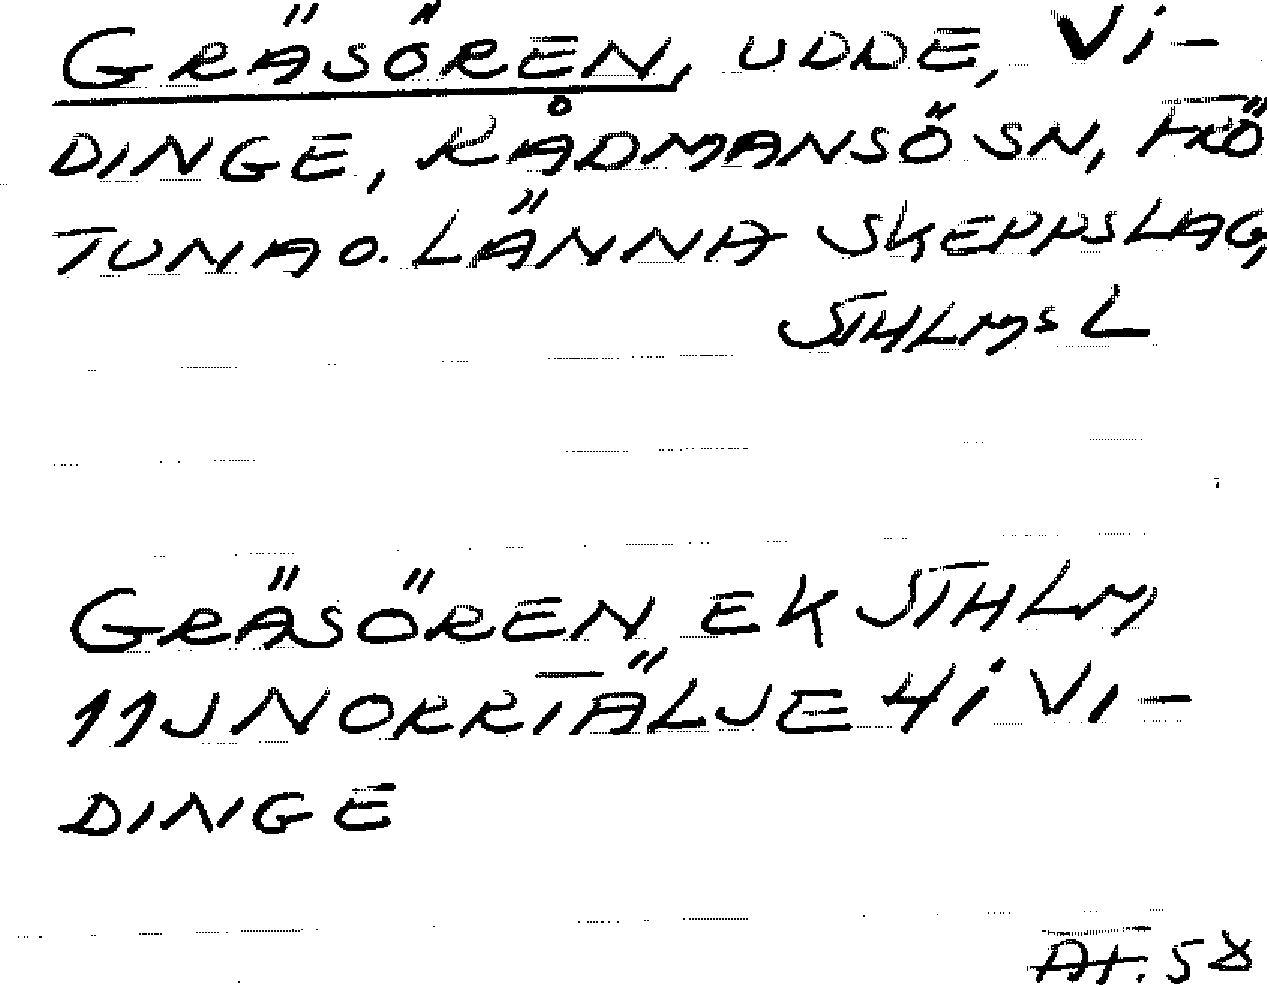 GRÄSÖREN, UDDE, Vi-
DINGE, RÅDMANSÖ SN, FRÖ
TUNA O. LÄNNA SKEPPSLAG,
STHLMS L
GRÄSÖREN EK STHLM
11J NORRTÄLJE 4i Vi-
DINGE
Af. 58